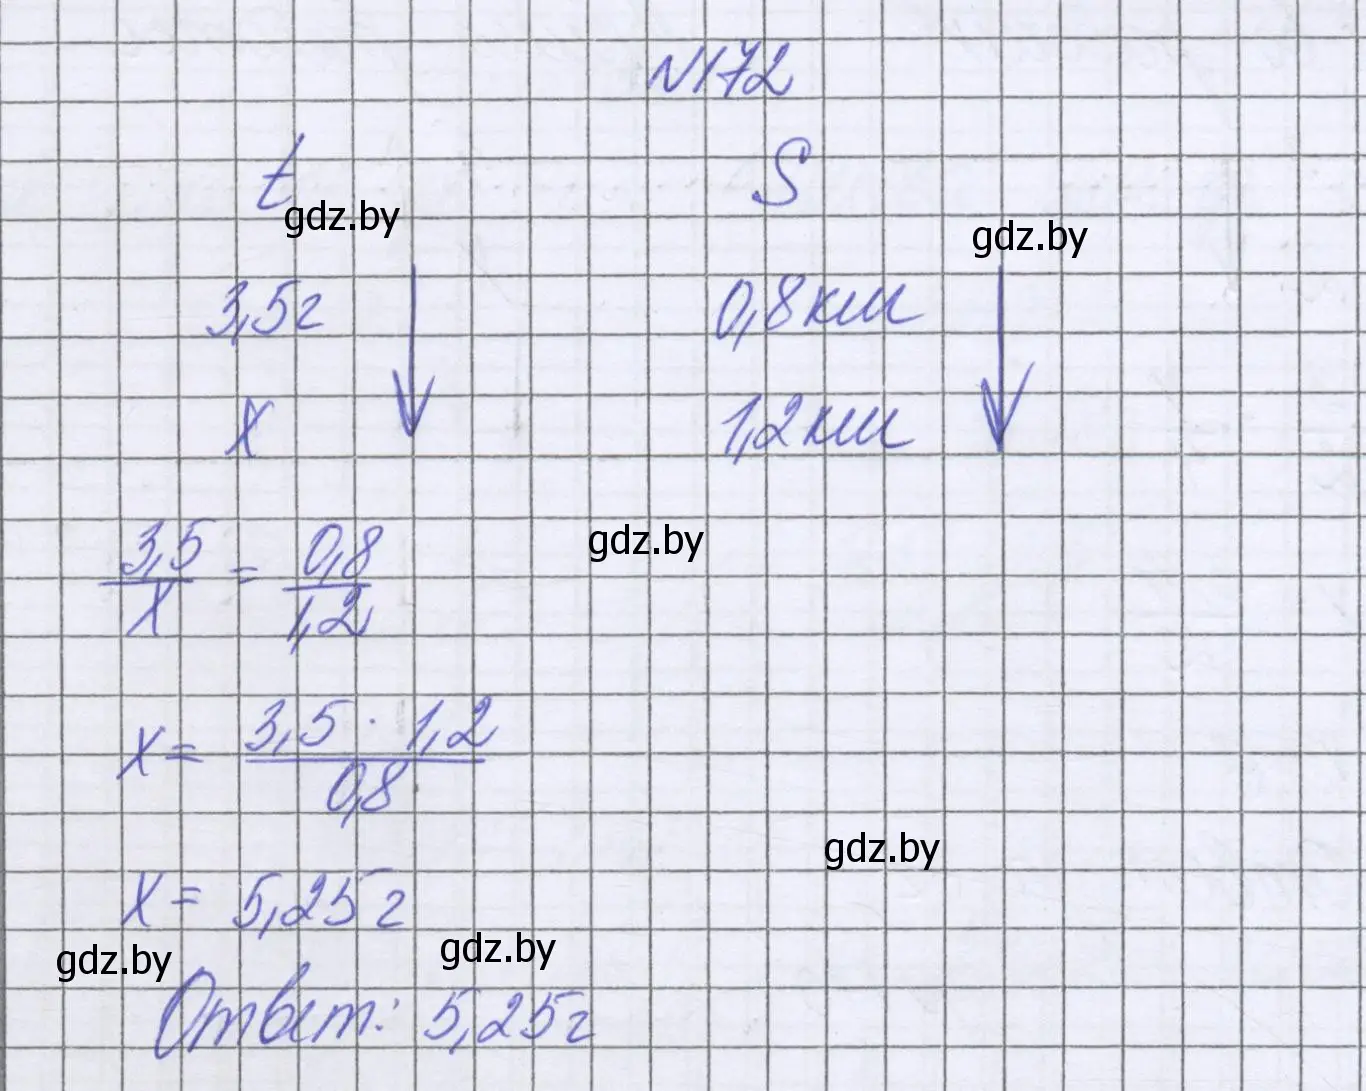 N172
t S
gdz.by gdz.by
3,5г 0,8км
x 1,2км
3,5/x = 0,8/1,2
gdz.by
x = 3,5 · 1,2 / 0,8
gdz.by
x = 5,25г
gdz.by gdz.by
Ответ: 5,25г